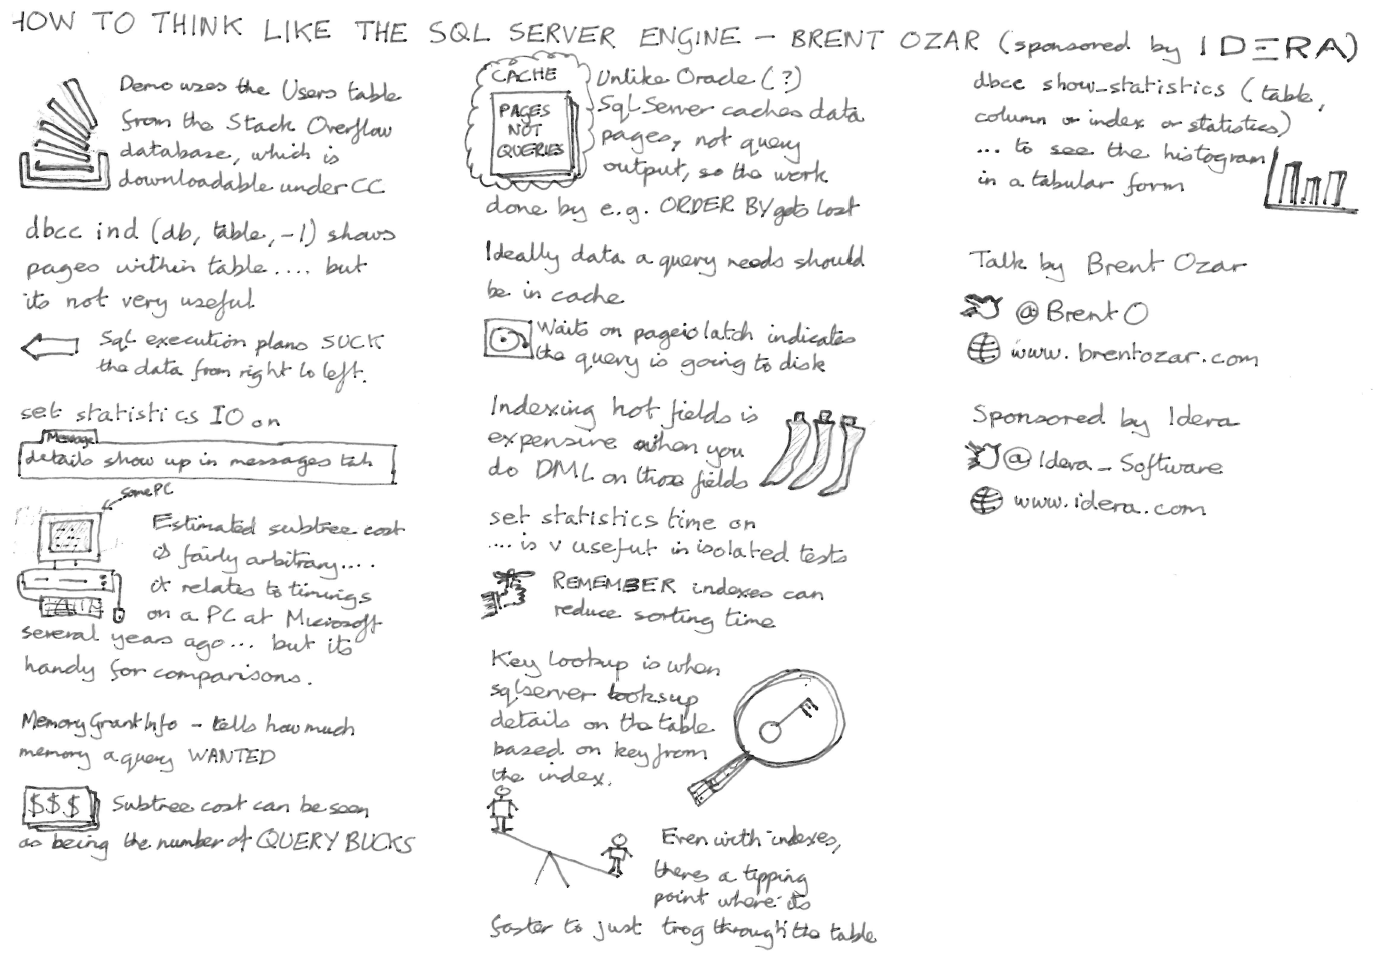 HOW TO THINK LIKE THE SQL SERVER ENGINE - BRENT OZAR (sponsored by IDERA)
Demo uses the Users table
from the Stack Overflow
database, which is
downloadable under CC
dbcc ind (db, table, -1) shows
pages within table.... but
its not very useful
Sql execution plans SUCK
the data from right to left.
set statistics IO on
Message
details show up in messages tab
some PC
Estimated subtree cost
is fairly arbitrary....
it relates to timings
on a PC at Microsoft
several years ago... but its
handy for comparisons.
MemoryGrantInfo - tells how much
memory a query WANTED
$$$
Subtree cost can be seen
as being the number of QUERY BUCKS
CACHE
PAGES
NOT
QUERIES
Unlike Oracle (?)
Sql Server caches data
pages, not query
output, so the work
done by e.g. ORDER BY gets lost
Ideally data a query needs should
be in cache
Waits on pageio latch indicates
the query is going to disk
Indexing hot fields is
expensive when you
do DML on those fields
set statistics time on
.... is v useful in isolated tests
REMEMBER indexes can
reduce sorting time
Key lookup is when
sqlserver looksup
details on the table
based on key from
the index.
Even with indexes,
theres a tipping
point where its
faster to just trog through the table
dbcc show_statistics (table,
column or index or statistics)
... to see the histogram
in a tabular form
Talk by Brent Ozar
@BrentO
www.brentozar.com
Sponsored by Idera
@Idera_Software
www.idera.com